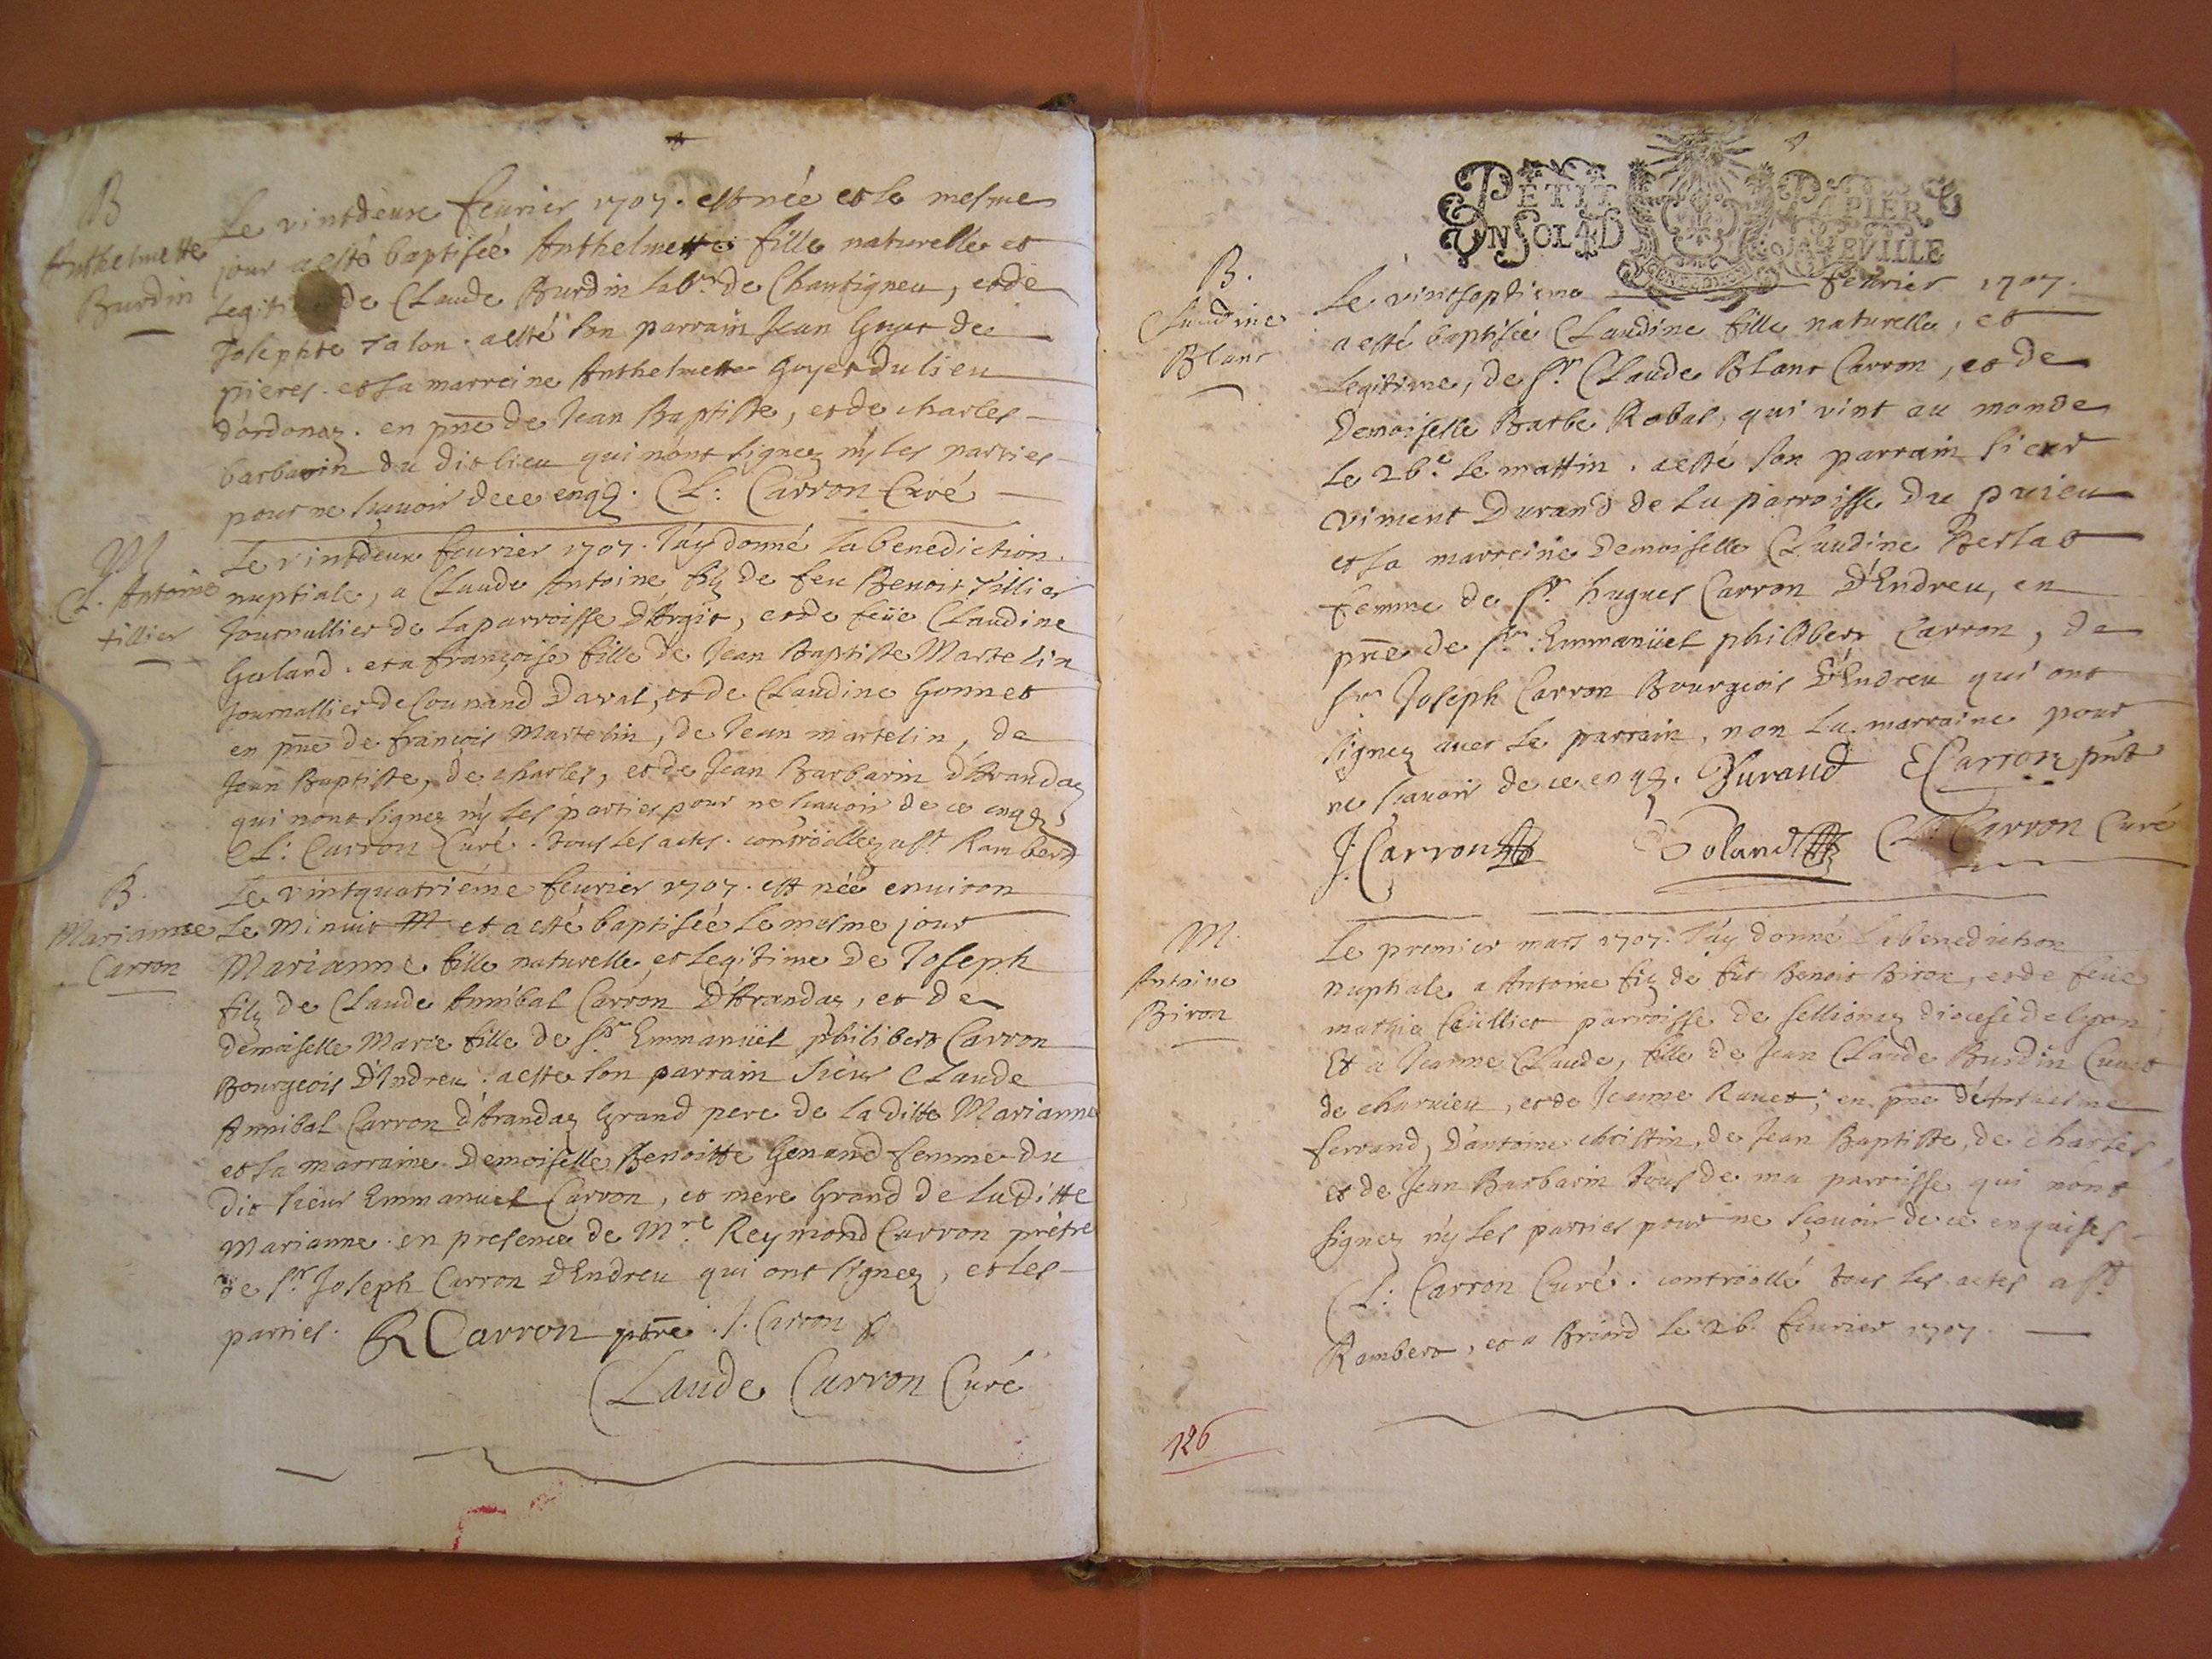 B
Anthelmette
Burdin
Le vintdeux feurier 1707. est née et le mesme
jour a esté baptisée Anthelmette fille naturelle et
legiti de Claude Burdin labr. de Chantigneu, et de
Josephte Talon. a esté son parrain Jean Goyet de
pieres. et sa marreine Anthelmette Goyet du lieu
d'ordonaz. en pñe de Jean Baptiste, et de charles
barbarin du dit lieu qui n'ont signez ny les parties
pour ne sçauoir de ce enqs. Cl: Carron Curé
M
Cl. Antoine
tillier
Le vintdeux feurier 1707. J'ay donné la benediction
nuptiale, a Claude Antoine filz de feu Benoit Tillier
Journallier de la parroisse D'Argit, et de feüe Claudine
Galand. et a françoise fille de Jean Baptiste Martelin
Journallier de Counand Daval, et de Claudine Gonnet
en pñe de françois Martelin, de Jean martelin, de
Jean Baptiste, de charles, et de Jean Barbarin d'Arandaz
qui n'ont signez ny les parties pour ne scauoir de ce enqs
Cl: Carron Curé. tous les actes. controöllez a st Rambert
B.
Marianne
Carron
Le vintquatriéme feurier 1707. est née enuiron
Le minuit et a esté baptisée le mesme jour
Marianne fille naturelle et legitime de Joseph
filz de Claude Annibal Carron D'Arandaz, et de
demoiselle Marie fille de sr. Emmanüel philibert Carron
Bourgeois D'Indreu. a esté son parrain sieur Claude
Annibal Carron d'Arandaz Grand pere de la ditte Marianne
et sa marraine Demoiselle Benoitte Genand femme du
dit sieur Emmanuel Carron, et mere Grand de la ditte
Marianne. en presence de Mre. Reymond Carron prêtre
de sr. Joseph Carron D'Endreu qui ont signez, et les
parties. R Carron ptre. J. Carron
Claude Carron Curé
PETIT PAPIER
UN SOL 4 D LA FEVILLE
B.
Claudine
Blanc
Le vintseptieme feurier 1707.
a esté baptisée Claudine fille naturelle, et
legitime, de sr. Claude Blanc Carron, et de
Demoiselle Barbe Robat, qui vint au monde
le 26e. le mattin. a esté son parrain sieur
viment Durand de la parroisse du prieu
et sa marreine Demoiselle Claudine Berlat
femme de sr. hugues Carron D'Endreu, en
pñe de sr. Emmanüel philibert Carron, de
sr. Joseph Carron Bourgeois D'Endreu qui ont
signez auec le parrain, non la marraine pour
ne scauoir de ce enqs. Durand E Carron pnt
J. Carron Cl. Carron Curé
M.
Antoine
Biron
Le premier mars 1707. J'ay donné la benediction
nuptiale a Antoine filz de fût Benoit Biron, et de feüe
mathie Cüillier parroisse de sellionaz diocese de lyon
Et a Jeanne Claude, fille de Jean Claude Burdin Cunet
de charuieu, et de Jeanne Rauet; en pñe d'Anthelme
ferrand, D'antoine christin, de Jean Baptiste, de charles,
et de Jean Barbarin tous de ma parroisse qui n'ont
signez ny les parties pour ne sçauoir de ce enquises
Cl: Carron Curé. controöllé tous les actes a st
Rambert, et a Briord le 26. feurier 1707.
126